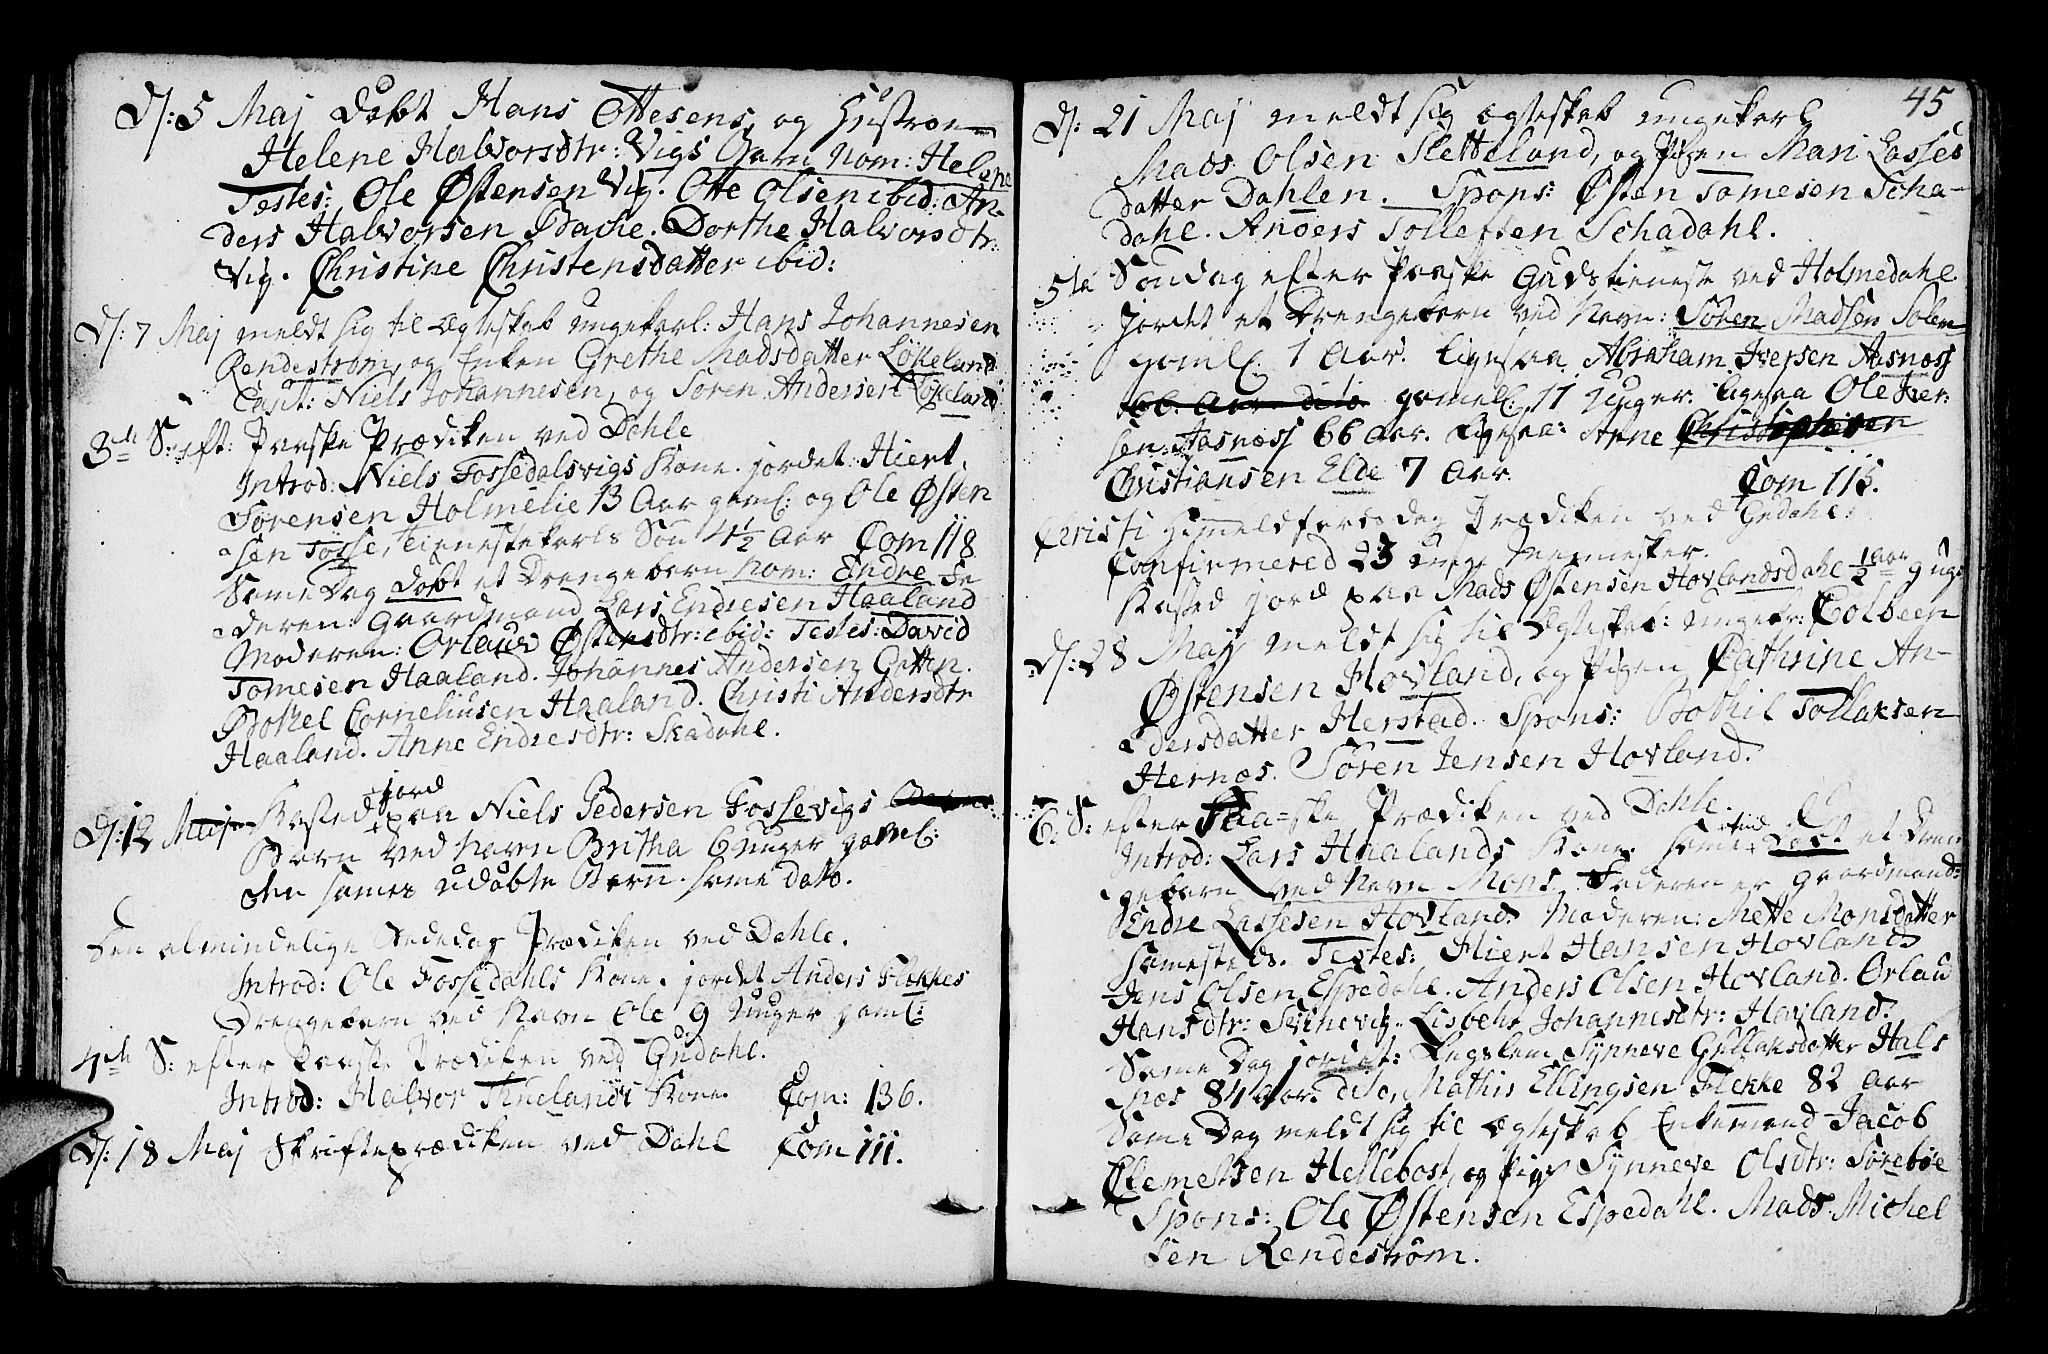 D: 5 Maj Døbt Hans Ottesens og Hustroe
Helene Halvorsdtr: Vigs Barn nom: Helene
Testes: Ole Østensen Vig. Otte Olsen ibid: An-
ders Halvorsen Bache. Dorthe Halvorsdtr:
Vig. Christine Christensdatter ibid:
D: 7 Maj meldt sig til Ægteskab Ungekarl: Hans Johannesen
Rendestrøm, og Enken Grethe Madsdatter Løkeland
Cavit: Niels Johannesen, og Søren Andersen Løkeland
3de S: eft: Paaske Prædiken ved Dahle
Introd: Niels Fossedalsvigs Kone. jordet: Hiert
Sørensen Holmelie 13 Aar gaml: og Ole Østen
sen Fosse, tienestekarls Søn 4½ Aar Com 118
Same Dag døbt et Drengebarn nom: Endre Fa
deren: Gaardmand Lars Endresen Haaland
Moderen: Orlaug Østensdtr: ibid: Testes: David
Tomesen Haaland. Johannes Andersen Gotten.
Bothel Corneliusen Haaland. Christi Andersdtr
Haaland. Anne Endresdtr: Skadahl.
D: 12 Maj Kasted jord paa Niels Pedersen Fossevigs
Barn ved navn Britha 6 uger gaml:
den sames udøbte Barn same dato.
Den almindelige Bededag Prædiken ved Dahle.
Introd: Ole Fossedahls Kone. jordet Anders Flekkes
Drengebarn ved Navn Ole 9 Uuger gaml:
4de S: efter Paaske Prædiken ved Gudahl.
Introd: Halvor Tunelands Kone. Com: 136.
D: 18 Maj Skrifteprædiken ved Dahl Com 111.
45
D: 21 Maj meldt sig Ægteskab ungekarl
Mads Olsen Sletteland, og Pigen Mari Lasses
datter Dahlen. Spons: Østen Tomesen Scha-
dahl. Anders Tollefsen Schadahl.
5te Søndag efter Paaske Gudstieneste ved Holmedahl.
jordet et Drengebarn ved Navn: Søren Madsen Solem
gaml: 1 Aar. ligesaa Abraham Iversen Aasnæss
66 Aar dito gamel: 11 Uuger. ligesaa Ole Iver-
sen Aasnæss 66 Aar. Ligesaa: Anne Christophersen
Christiansen Elde 7 Aar. Com 115.
Christi Himmelfarts dag Prædiken ved Gudahl:
Confirmered 23 unge Mennesker.
Kasted jord paa Mads Østensen Hovlandsdahl ½ Aar 9 ugr
D: 28 Maij meldt sig til Ægteskab: ungekr: Colbeen
Østensen Hovland, og Pigen Cathrine An-
dersdatter Herstad. Spons: Bothil Tollaksen
Hernæs. Søren Jensen Hovland.
6. S: efter Paa=ske Prædiken ved Dahle.
Introd: Lars Haalands Kone. same stæd døbt et Dren
gebarn ved Navn Mons. Faderen er Gaardmand:
Endre Lassesen Hovland. Moderen: Mette Monsdatter
samesteds. Testes: Hiert Hansen Hovland
Jens Olsen Espedahl. Anders Olsen Hovland. Orlau
Hansdtr: Svinevig. Lisbeht Johannesdtr: Hovland.
Same Dag jordet: Lægslem Synneve Gullaksdatter Hals
næs 84 Aar. dito, Mathis Ellingsen Flekke 82 Aar
Same Dag meldt sig til Ægteskab Enkemand Jacob
Clemetsen Hellebost, og Pige Synneve Olsdtr: Sørebøe
Spons: Ole Østensen Espedahl. Mads Michel
sen Rendestrøm.